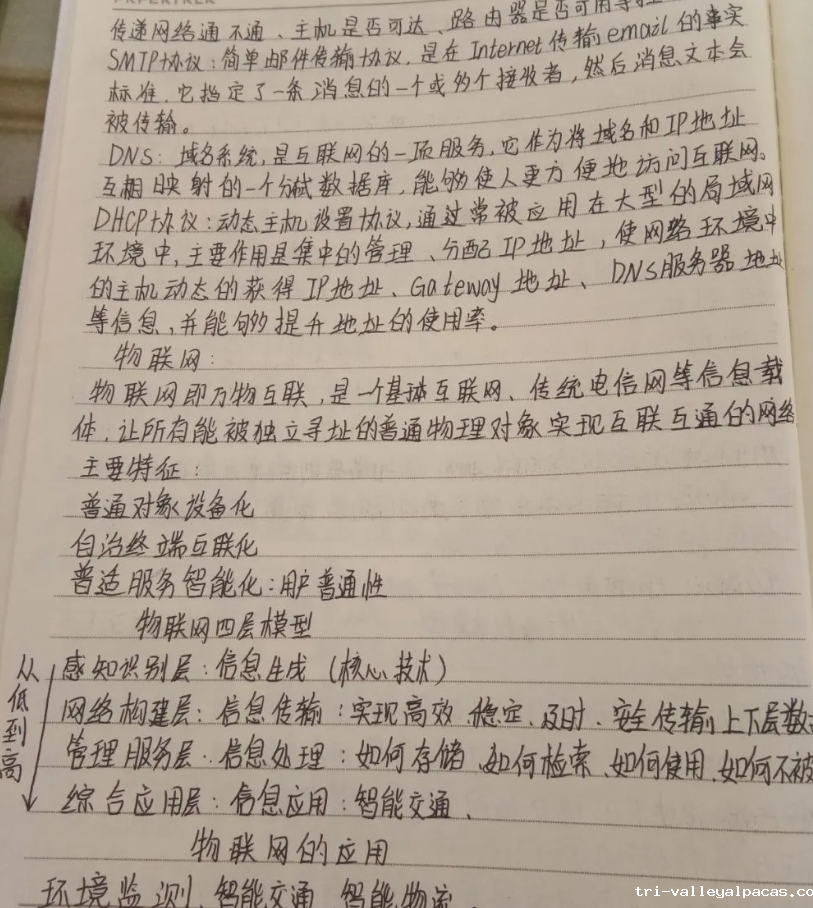 PAPERTREK
传递网络通不通、主机是否可达、路由器是否可用等
SMTP协议：简单邮件传输协议，是在Internet传输email的事实
标准，它指定了一条消息的一个或多个接收者，然后消息文本会
被传输。
DNS：域名系统，是互联网的一项服务，它作为将域名和IP地址
互相映射的一个分布式数据库，能够使人更方便地访问互联网。
DHCP协议：动态主机设置协议，通过常被应用在大型的局域网
环境中，主要作用是集中的管理、分配IP地址，使网络环境中
的主机动态的获得IP地址、Gateway地址、DNS服务器地址
等信息，并能够提升地址的使用率。
物联网：
物联网即万物互联，是一个基于互联网、传统电信网等信息载
体，让所有能被独立寻址的普通物理对象实现互联互通的网络
主要特征：
普通对象设备化
自治终端互联化
普适服务智能化：用户普通性
物联网四层模型
从低到高
感知识别层：信息生成（核心技术）
网络构建层：信息传输：实现高效、稳定、及时、安全传输上下层数
管理服务层：信息处理：如何存储、如何检索、如何使用、如何不被
综合应用层：信息应用：智能交通、
物联网的应用
环境监测、智能交通、智能物流
tri-valleyalpacas.com